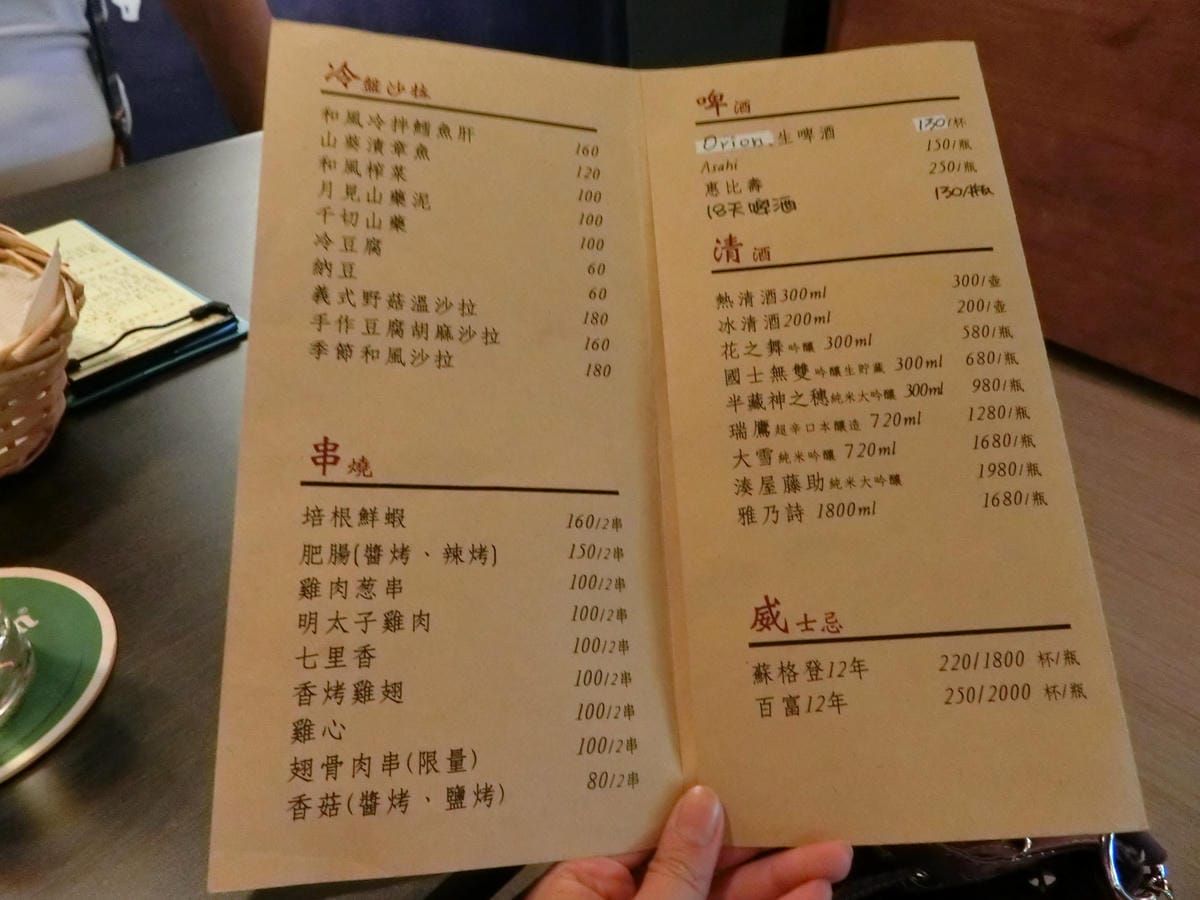 冷盤沙拉
和風冷拌鱈魚肝 160
山葵漬章魚 120
和風榨菜 100
月見山藥泥 100
千切山藥 100
冷豆腐 60
納豆 60
義式野菇溫沙拉 180
手作豆腐胡麻沙拉 160
季節和風沙拉 180
串燒
培根鮮蝦 160/2串
肥腸(醬烤、辣烤) 150/2串
雞肉蔥串 100/2串
明太子雞肉 100/2串
七里香 100/2串
香烤雞翅 100/2串
雞心 100/2串
翅骨肉串(限量) 100/2串
香菇(醬烤、鹽烤) 80/2串
啤酒
Orion.生啤酒 130/杯
Asahi 150/瓶
惠比壽 250/瓶
18天啤酒 130/瓶
清酒
熱清酒300ml 300/壺
冰清酒200ml 200/壺
花之舞吟釀 300ml 580/瓶
國士無雙吟釀生貯藏 300ml 680/瓶
半藏神之穗純米大吟釀 300ml 980/瓶
瑞鷹超辛口本釀造 720ml 1280/瓶
大雪純米吟釀 720ml 1680/瓶
湊屋藤助純米大吟釀 1980/瓶
雅乃詩 1800ml 1680/瓶
威士忌
蘇格登12年 220/1800 杯/瓶
百富12年 250/2000 杯/瓶